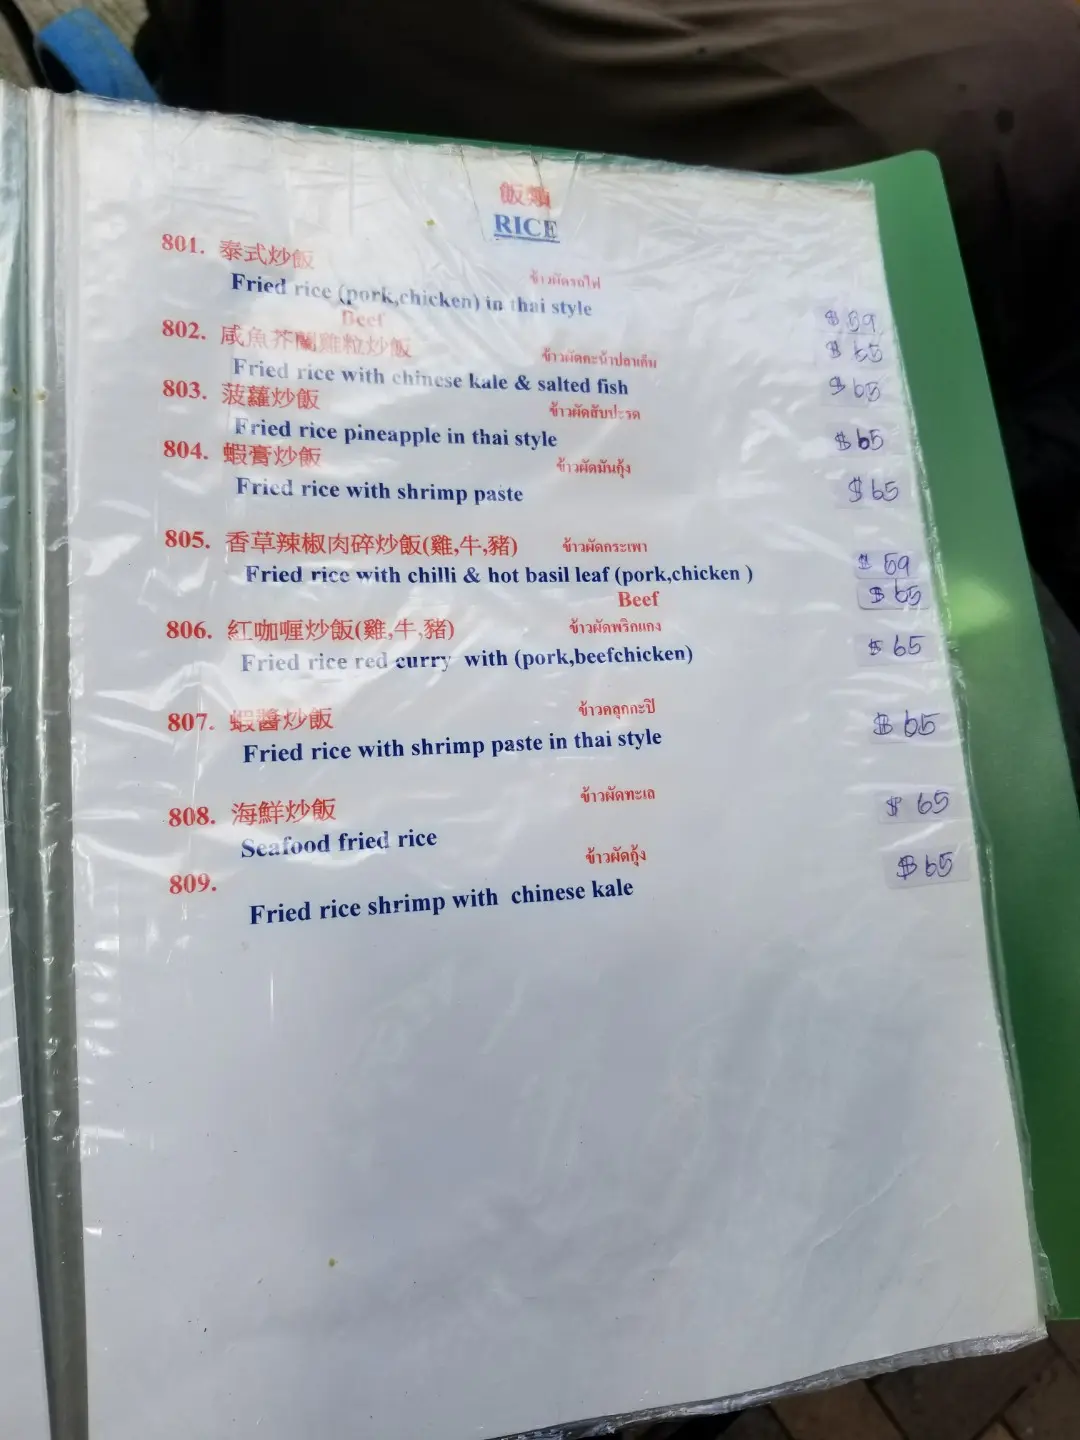 飯類
RICE
801. 泰式炒飯 ข้าวผัดรถไฟ
Fried rice (pork,chicken) in thai style $ 59
Beef $ 65
802. 咸魚芥蘭雞粒炒飯 ข้าวผัดคะน้าปลาเค็ม
Fried rice with chinese kale & salted fish $ 65
803. 菠蘿炒飯 ข้าวผัดสับปะรด
Fried rice pineapple in thai style $ 65
804. 蝦膏炒飯 ข้าวผัดมันกุ้ง
Fried rice with shrimp paste $ 65
805. 香草辣椒肉碎炒飯(雞,牛,豬) ข้าวผัดกระเพา
Fried rice with chilli & hot basil leaf (pork,chicken ) $ 59
Beef $ 65
806. 紅咖喱炒飯(雞,牛,豬) ข้าวผัดพริกแกง
Fried rice red curry with (pork,beefchicken) $ 65
807. 蝦醬炒飯 ข้าวคลุกกะปิ
Fried rice with shrimp paste in thai style $ 65
808. 海鮮炒飯 ข้าวผัดทะเล
Seafood fried rice $ 65
809. ข้าวผัดกุ้ง
Fried rice shrimp with chinese kale $ 65